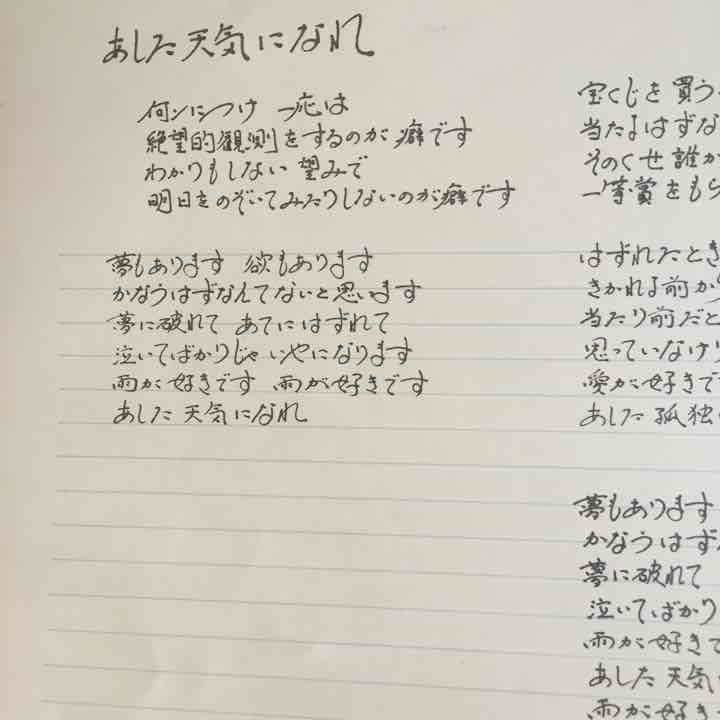 あした天気になれ
何ンにつけ 一応は
絶望的観測をするのが癖です
わかりもしない望みで
明日をのぞいてみたりしないのが癖です
夢もあります 欲もあります
かなうはずなんてないと思います
夢に破れて あてにはずれて
泣いてばかりじゃいやになります
雨が好きです 雨が好きです
あした天気になれ
宝くじを買う
当たるはずな
そのくせ誰か
一等賞をもら
はずれたとき
きかれる前か
当たり前だと
思っていなけ
愛が好きで
あした孤独
夢もあります
かなうはず
夢に破れて
泣いてばかり
雨が好きで
あした天気
雨が好きで